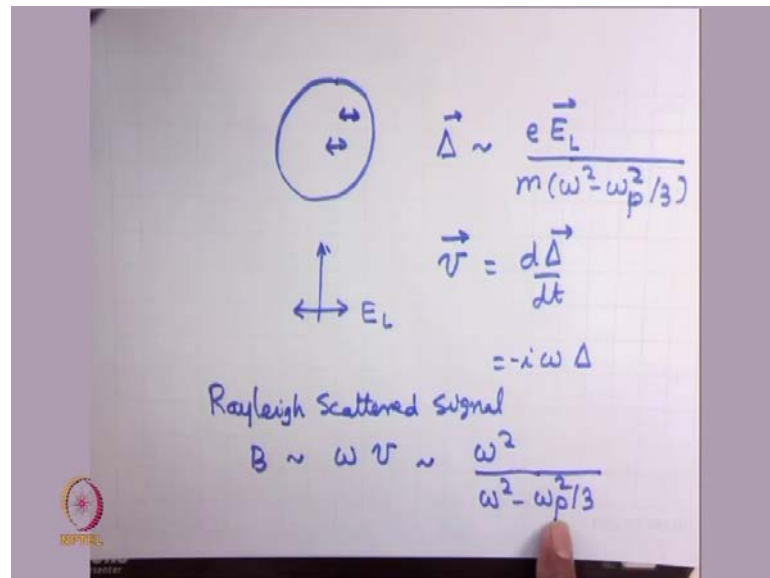 Δ⃗ ~ e E⃗_L / m(ω² - ω_p²/3)
v⃗ = dΔ⃗/dt
E_L
= -iωΔ
Rayleigh Scattered Signal
B ~ ω v ~ ω² / ω² - ω_p²/3
NPTEL